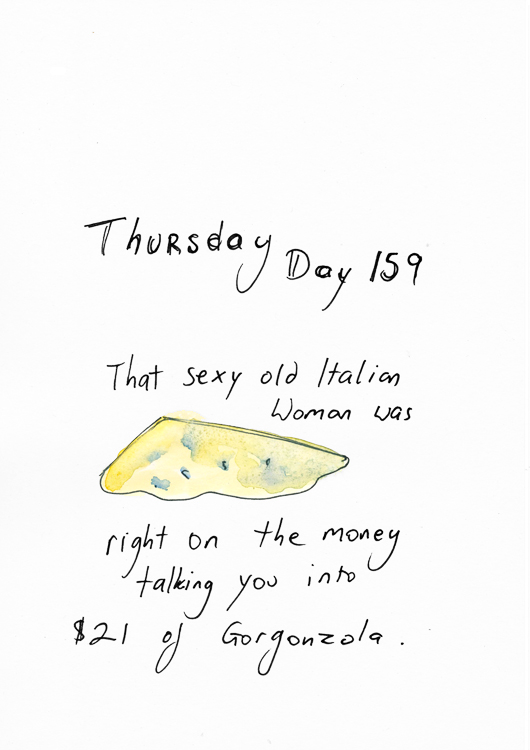 Thursday
Day 159
That sexy old Italian
Woman was
right on the money
talking you into
$21 of Gorgonzola.